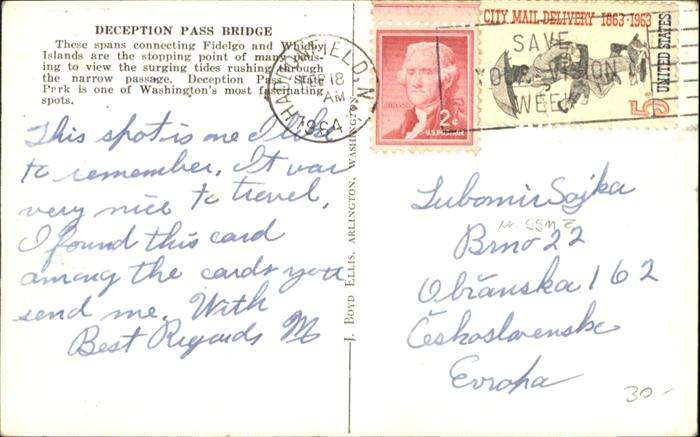 DECEPTION PASS BRIDGE
These spans connecting Fidelgo and Whidby
Islands are the stopping point of many paus-
ing to view the surging tides rushing through
the narrow passage. Deception Pass State
Park is one of Washington's most fascinating
spots.
This spot is one I like
to remember. It was
very nice to travel,
I found this card
among the cards you
send me. With
Best Regards M
J. BOYD ELLIS, ARLINGTON, WASHINGTON
FIELD, N
18
AM
1964
2¢
U.S. POSTAGE
CITY MAIL DELIVERY 1863·1963
UNITED STATES
5
SAVE
YOUR VISION
WEEK
Lubomir Sojka
Brno 22
Obřanska 162
Československe
Evropa
30-